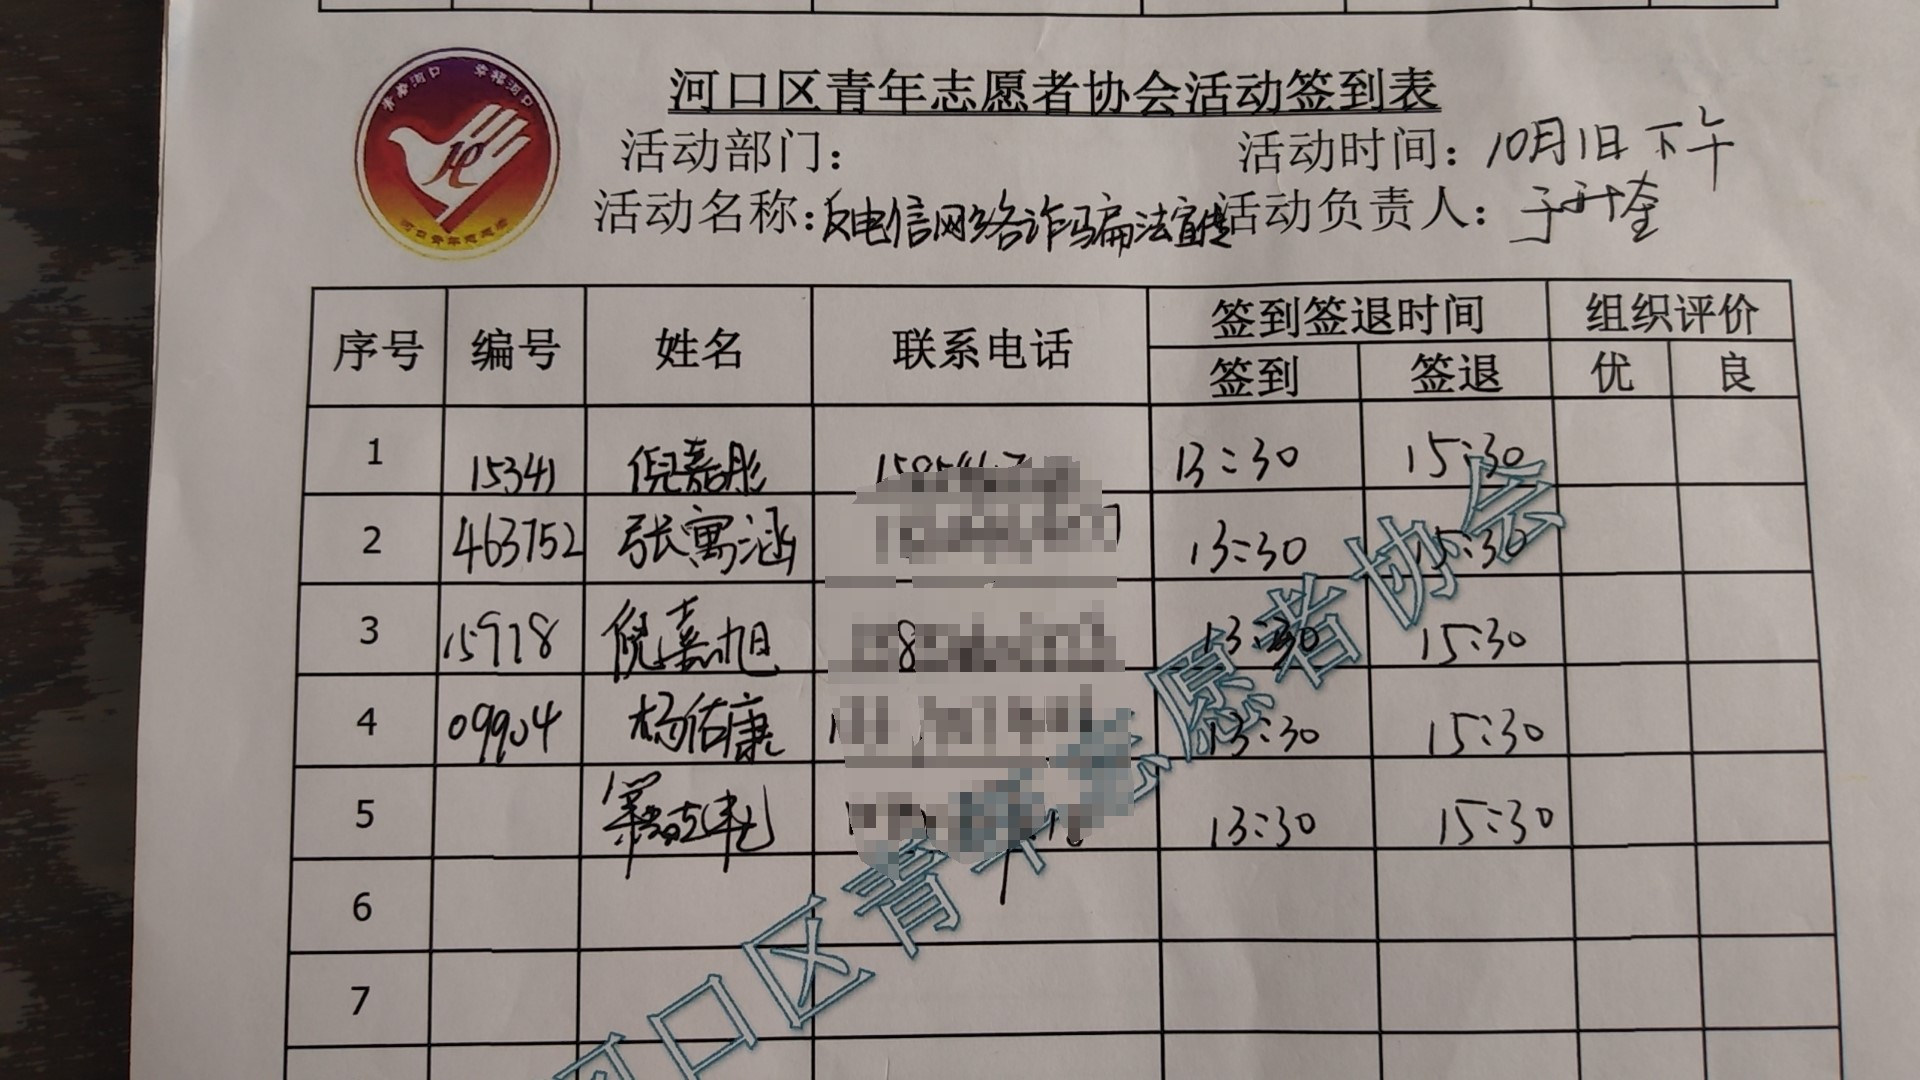 青春河口 幸福河口
河口青年志愿者
河口区青年志愿者协会活动签到表
活动部门： 活动时间：10月1日下午
活动名称：反电信网络诈骗法宣传 活动负责人：于升奎
序号 编号 姓名 联系电话 签到签退时间 组织评价
签到 签退 优 良
1 15341 倪嘉彤 13:30 15:30
2 463752 张寓涵 13:30 15:30
3 15978 倪嘉旭 13:30 15:30
4 09904 杨佑康 13:30 15:30
5 13:30 15:30
6
7
河口区青年志愿者协会